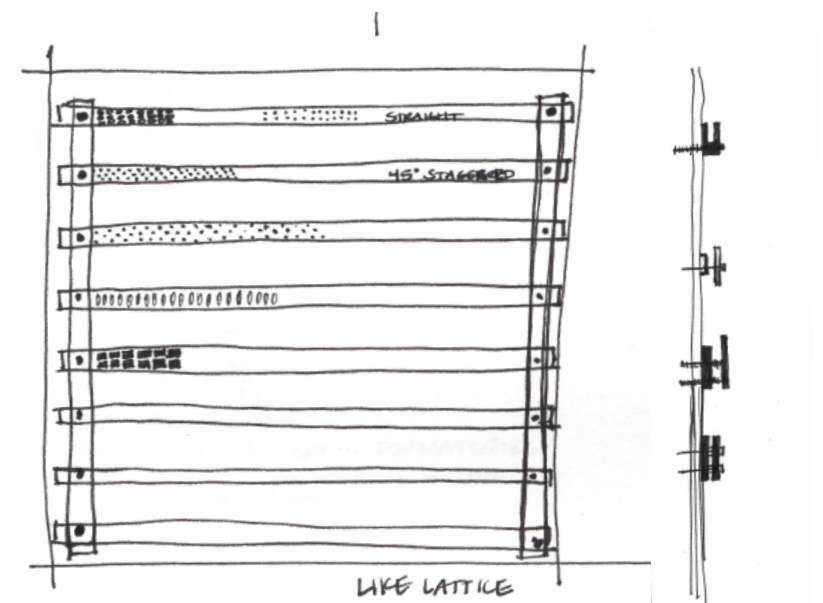 STRAIGHT
45° STAGGERED
LIKE LATTICE